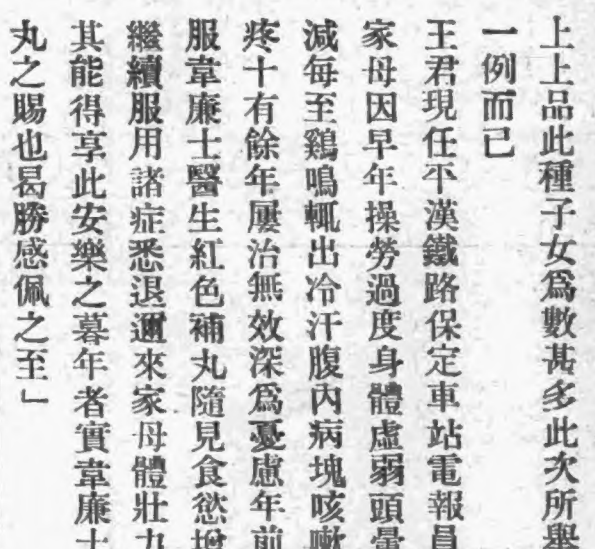 上上品此種子女爲數甚多此次所舉
一例而已
王君現任平漢鐵路保定車站電報員
家母因早年操勞過度身體虛弱頭暈
減每至鷄鳴輒出冷汗腹內病塊咳嗽
疼十有餘年屢治無效深爲憂慮年前
服韋廉士醫生紅色補丸隨見食慾增
繼續服用諸症悉退邇來家母體壯力
其能得享此安樂之暮年者實韋廉士
丸之賜也曷勝感佩之至」